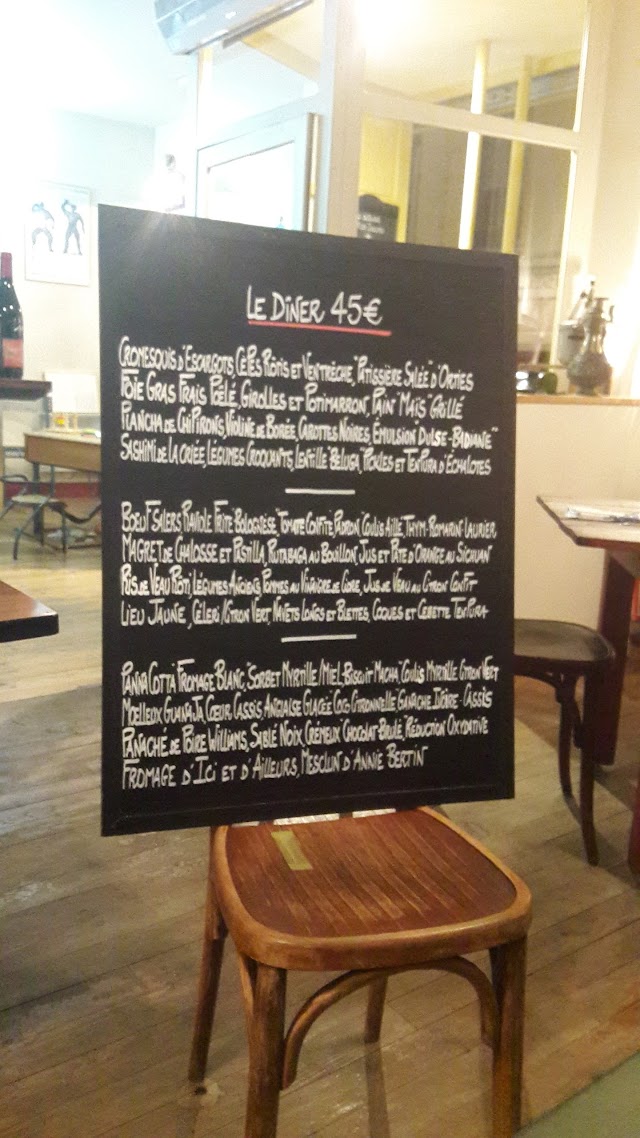 LE DÎNER 45€
CROMESQUIS D'ESCARGOTS, CÈPES RÔTIS ET VENTRÈCHE, "PATISSIÈRE SALÉE" D'ORTIES
FOIE GRAS FRAIS POÊLÉ, GIROLLES ET POTIMARRON, PAIN "MAÏS" GRILLÉ
PLANCHA DE CHIPIRONS, VIOLINE DE BORÉE, CAROTTES NOIRES, ÉMULSION "DULSE-BADIANE"
SASHIMI DE LA CRIÉE, LÉGUMES CROQUANTS, LENTILLE "BELUGA," PICKLES ET TEMPURA D'ÉCHALOTES
BOEUF SALERS RAVIOLE FRITE BOLOGNÈSE "TOMATE CONFITE PADRON," COULIS AILLÉ THYM-ROMARIN-LAURIER
MAGRET DE CHALOSSE ET PASTILLA, RUTABAGA AU BOUILLON, JUS ET PÂTE D'ORANGE AU SICHUAN
RIS DE VEAU RÔTI, LÉGUMES ANCIENS, POMMES AU VINAIGRE DE CIDRE, JUS DE VEAU AU CITRON CONFIT
LIEU JAUNE, CÉLERI/CITRON VERT NAVETS LONGS ET BLETTES, COQUES ET CEBETTE TEMPURA
PANNA COTTA "FROMAGE BLANC," SORBET MYRTILLE/MIEL-BISCUIT "MACHA," COULIS MYRTILLE CITRON VERT
MOELLEUX GUANAJA COEUR CASSIS, ANGLAISE GLACÉE "COCO CITRONNELLE" GANACHE IVOIRE-CASSIS
PANACHÉ DE POIRE WILLIAMS, SABLÉ NOIX, CRÉMEUX "CHOCOLAT BRULÉ," RÉDUCTION OXYDATIVE
FROMAGE D'ICI ET D'AILLEURS, MESCLUN D'ANNIE BERTIN